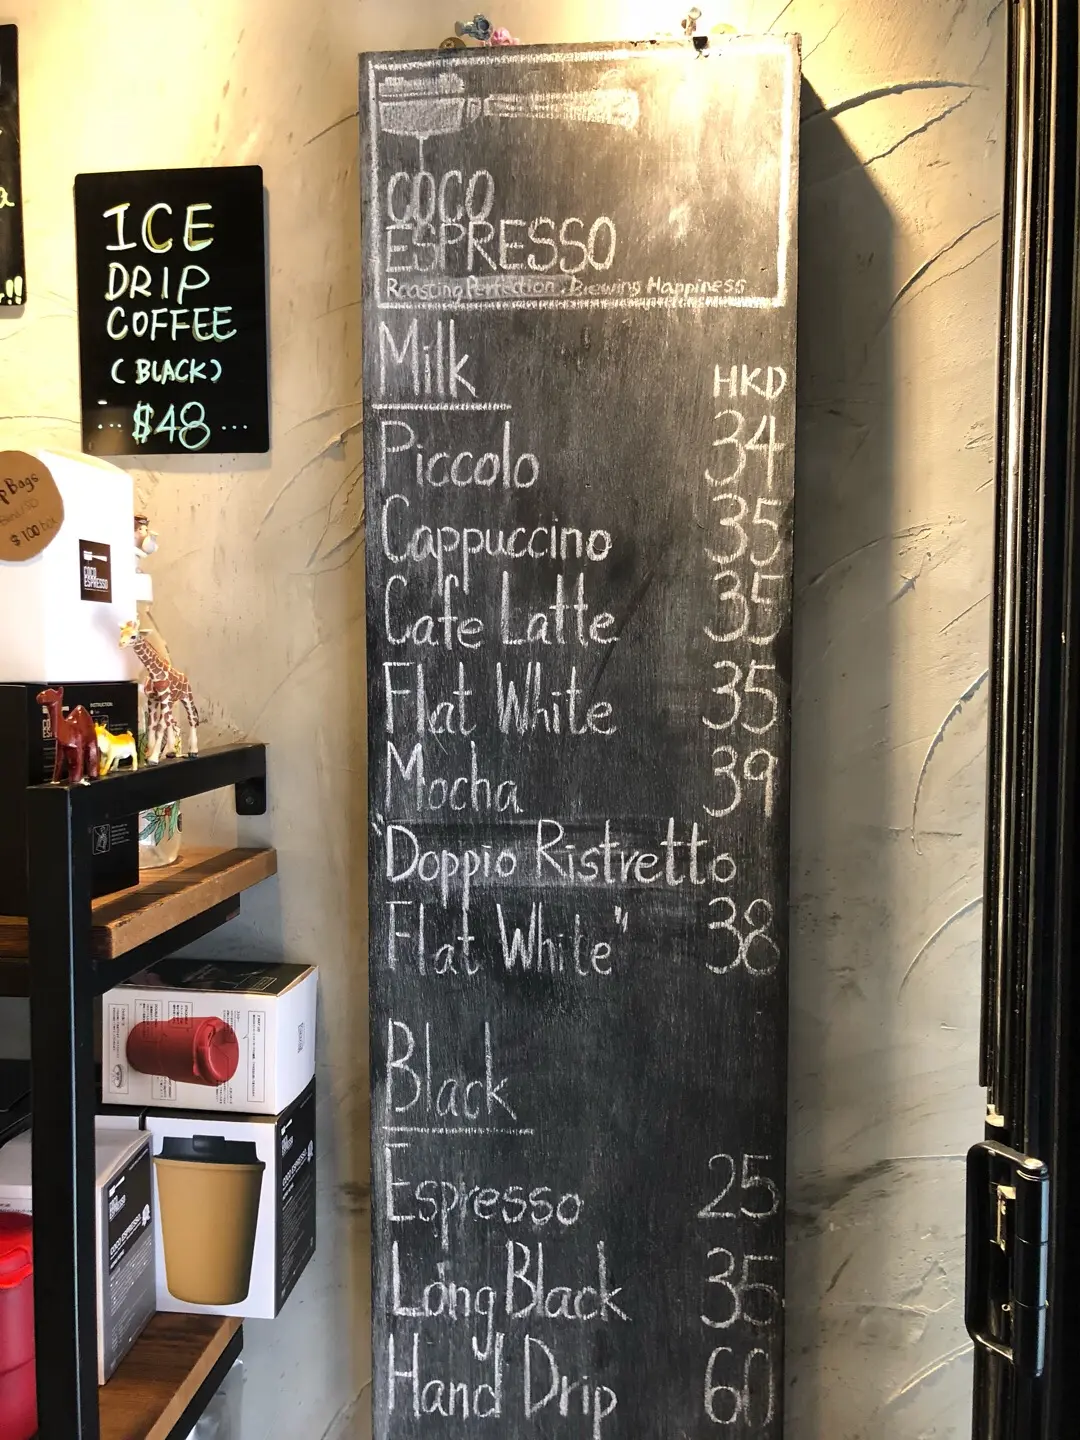 ICE
DRIP
COFFEE
(BLACK)
... $48 ...
Bags
$100 box
COCO
ESPRESSO
COCO
ESPRESSO
Roasting Perfection, Brewing Happiness
Milk
HKD
Piccolo 34
Cappuccino 35
Cafe Latte 35
Flat White 35
Mocha 39
"Doppio Ristretto
Flat White" 38
Black
Espresso 25
Long Black 35
Hand Drip 60
INSTRUCTION:
COCO ESPRESSO
COCO ESPRESSO